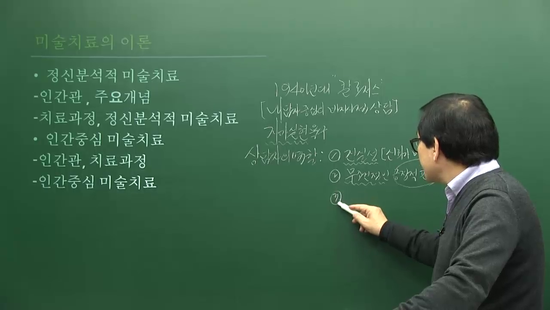 미술치료의 이론
• 정신분석적 미술치료
-인간관 , 주요개념
-치료과정, 정신분석적 미술치료
• 인간중심 미술치료
-인간관, 치료과정
-인간중심 미술치료
1940년대 "칼 로저스"
상담]
자아실현 추구
상담자의 역할: ① 진실성
② 무조건적인 긍정적
③